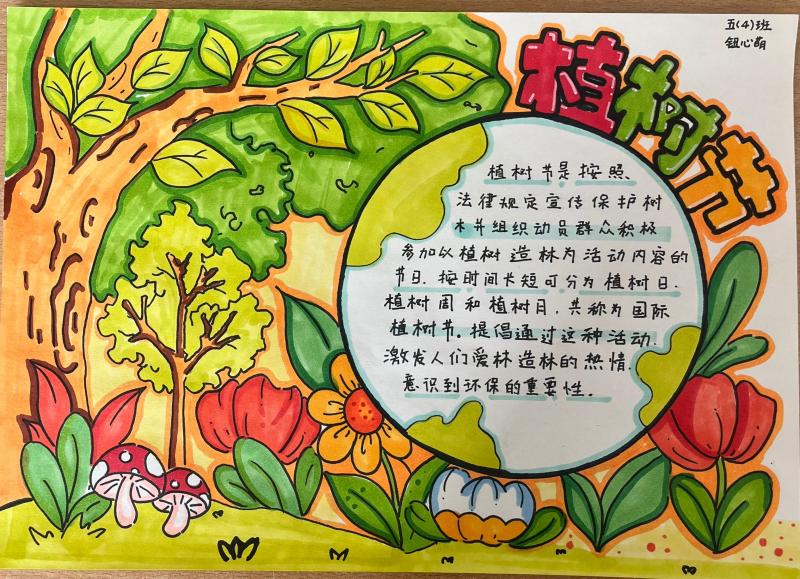 五(4)班
钮心萌
植树节
植树节是按照、
法律规定宣传保护树
木并组织动员群众积极
参加以植树造林为活动内容的
节日.按时间长短可分为植树日.
植树周和植树月.共称为国际
植树节.提倡通过这种活动.
激发人们爱林造林的热情.
意识到环保的重要性.